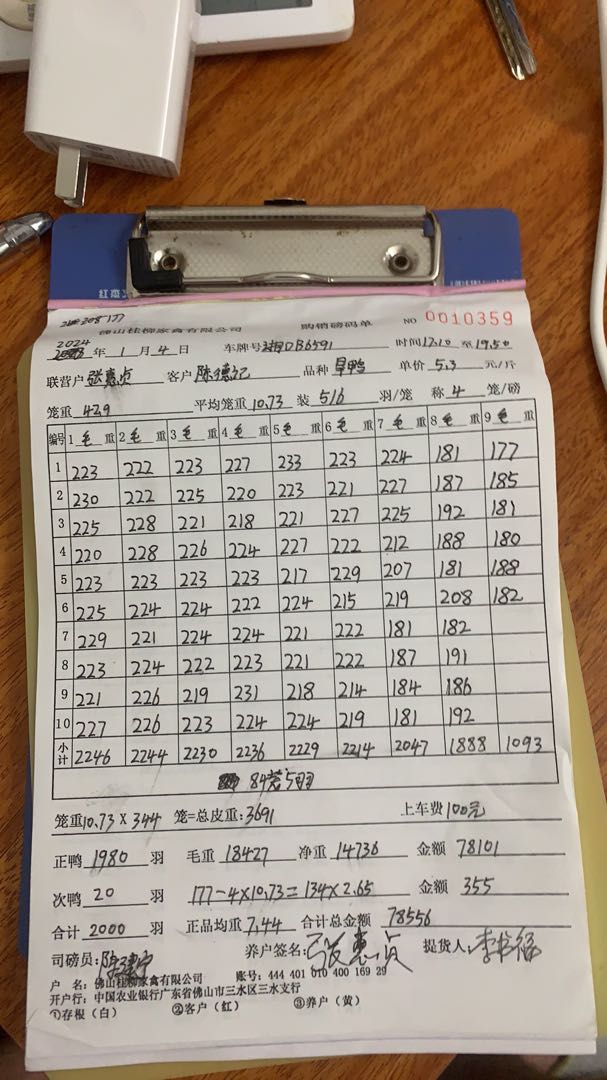 红杰
208 177
佛山桂柳家禽有限公司 购销磅码单 NO 0010359
2024 年 1 月 4 日 车牌号 DB6591 时间 17.10 至 19.50
联营户 张惠贞 客户 陈德记 品种 旱鸭 单价 5.3 元/斤
笼重 42.9 平均笼重 10.73 装 5/6 羽/笼 称 4 笼/磅
编号 1 毛 重 2 毛 重 3 毛 重 4 毛 重 5 毛 重 6 毛 重 7 毛 重 8 毛 重 9 毛 重
1 223 222 223 227 233 223 224 181 177
2 230 222 225 220 223 221 227 187 185
3 225 228 221 218 221 227 225 192 181
4 220 228 226 224 227 222 212 188 180
5 223 223 223 223 217 229 207 181 188
6 225 224 224 222 224 215 219 208 182
7 229 221 224 224 221 222 181 182
8 223 224 222 223 221 222 187 191
9 221 226 219 231 218 214 184 186
10 227 226 223 224 224 219 181 192
小计 2246 2244 2230 2236 2229 2214 2047 1888 1093
84笼5羽
笼重10.73 X 344 笼=总皮重:3691 上车费100元
正鸭 1980 羽 毛重 18427 净重 14736 金额 78101
次鸭 20 羽 177-4X10.73=134X2.65 金额 355
合计 2000 羽 正品均重 7.44 合计总金额 78556
司磅员: 养户签名:张惠贞 提货人:
户 名:佛山桂柳家禽有限公司 账号:444 401 010 400 169 29
开户行:中国农业银行广东省佛山市三水区三水支行
①存根(白) ②客户(红) ③养户(黄)